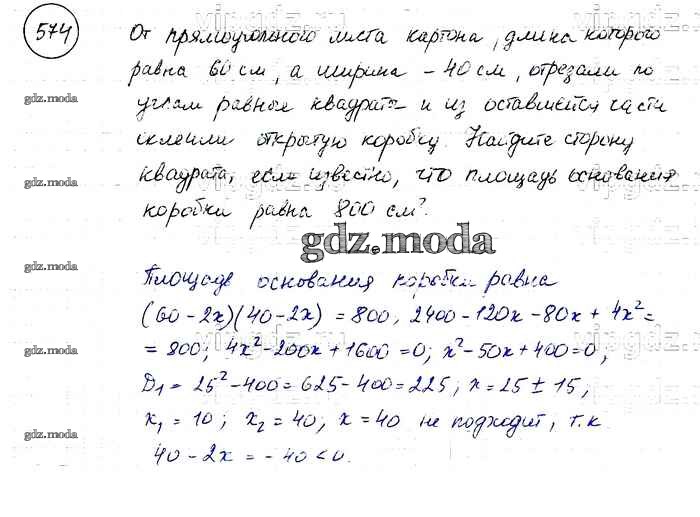 574
От прямоугольного листа картона, длина которого
равна 60 см, а ширина – 40 см, отрезали по
углам равные квадраты и из оставшейся части
склеили открытую коробку. Найдите сторону
квадрата, если известно, что площадь основания
коробки равна 800 см².
gdz.moda
Площадь основания коробки равна
(60-2x)(40-2x) = 800, 2400-120x-80x+4x²=
= 800; 4x²-200x+1600=0; x²-50x+400=0,
D₁ = 25²-400=625-400=225; x=25±15,
x₁=10; x₂=40; x=40 не подходит, т.к
40-2x=-40<0.
gdz.moda
gdz.moda
gdz.moda
gdz.moda
gdz.moda